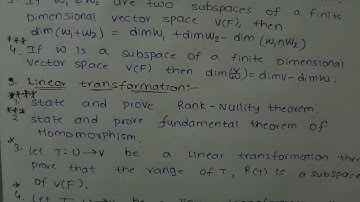 3. If W1 & W2 are two subspaces of a finite
Dimensional vector space V(F), then
dim (W1+W2) = dimW1 + dimW2 - dim (W1∩W2)
***
4. If W is a subspace of a finite Dimensional
vector space V(F) then dim(V/W) = dimV - dimW.
9. Linear transformation:-
****
1. state and prove Rank-Nullity theorem.
***
2. state and prove fundamental theorem of
Homomorphism.
*
3. Let T: U→V be a Linear transformation the
prove that the range of T, R(T) is a subspa
of V(F).
*
4.